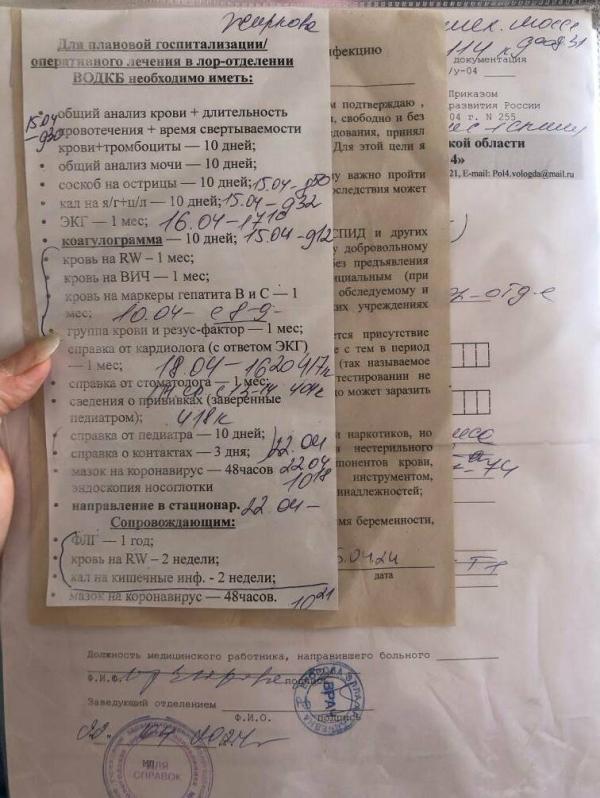 Для плановой госпитализации/
оперативного лечения в лор-отделении
ВОДКБ необходимо иметь:
общий анализ крови + длительность
15.04
кровотечения + время свертываемости
крови+тромбоциты — 10 дней;
общий анализ мочи — 10 дней;
соскоб на острицы — 10 дней; 15.04 - 9
кал на я/г+ц/л — 10 дней; 15.04 - 9 32
ЭКГ — 1 мес; 16.04 - 17 10
коагулограмма — 10 дней; 15.04 - 9 12
кровь на RW – 1 мес;
кровь на ВИЧ — 1 мес;
кровь на маркеры гепатита В и С — 1
мес; 10.04 - с 8 - 9 -
группа крови и резус-фактор — 1 мес;
справка от кардиолога (с ответом ЭКГ)
— 1 мес; 18.04 - 16 20 417к
справка от стоматолога — 1 мес;
404к
сведения о прививках (заверенные
педиатром); 418к
справка от педиатра — 10 дней; 22.04
справка о контактах — 3 дня;
мазок на коронавирус — 48часов 22.04
эндоскопия носоглотки 10 18
направление в стационар. 22.04 -
Сопровождающим:
ФЛГ — 1 год;
кровь на RW – 2 недели;
кал на кишечные инф. - 2 недели;
мазок на коронавирус — 48часов. 10 21
нфекцию
м подтверждаю ,
и, свободно и без
едования, принял
Для этой цели я
му важно пройти
оследствия может
СПИД и других
у добровольному
ез предъявления
ициальным (при
обследуемому и
ких учреждениях
ется присутствие
е с тем в период
(так называемое
тестировании не
до может заразить
и наркотиков, но
нестерильного
понентов крови,
инструментом,
инадлежностей;
мя беременности,
5.04.24
дата
документация
/у-04
Приказом
развития России
04 г. N 255
ской области
4»
21, E-mail: Pol4.vologda@mail.ru
Должность медицинского работника, направившего больного
Ф.И.О.
подпись
Заведующий отделением
Ф.И.О.
подпись
22. 04 2024г
МП
ДЛЯ
СПРАВОК
ВРАЧ